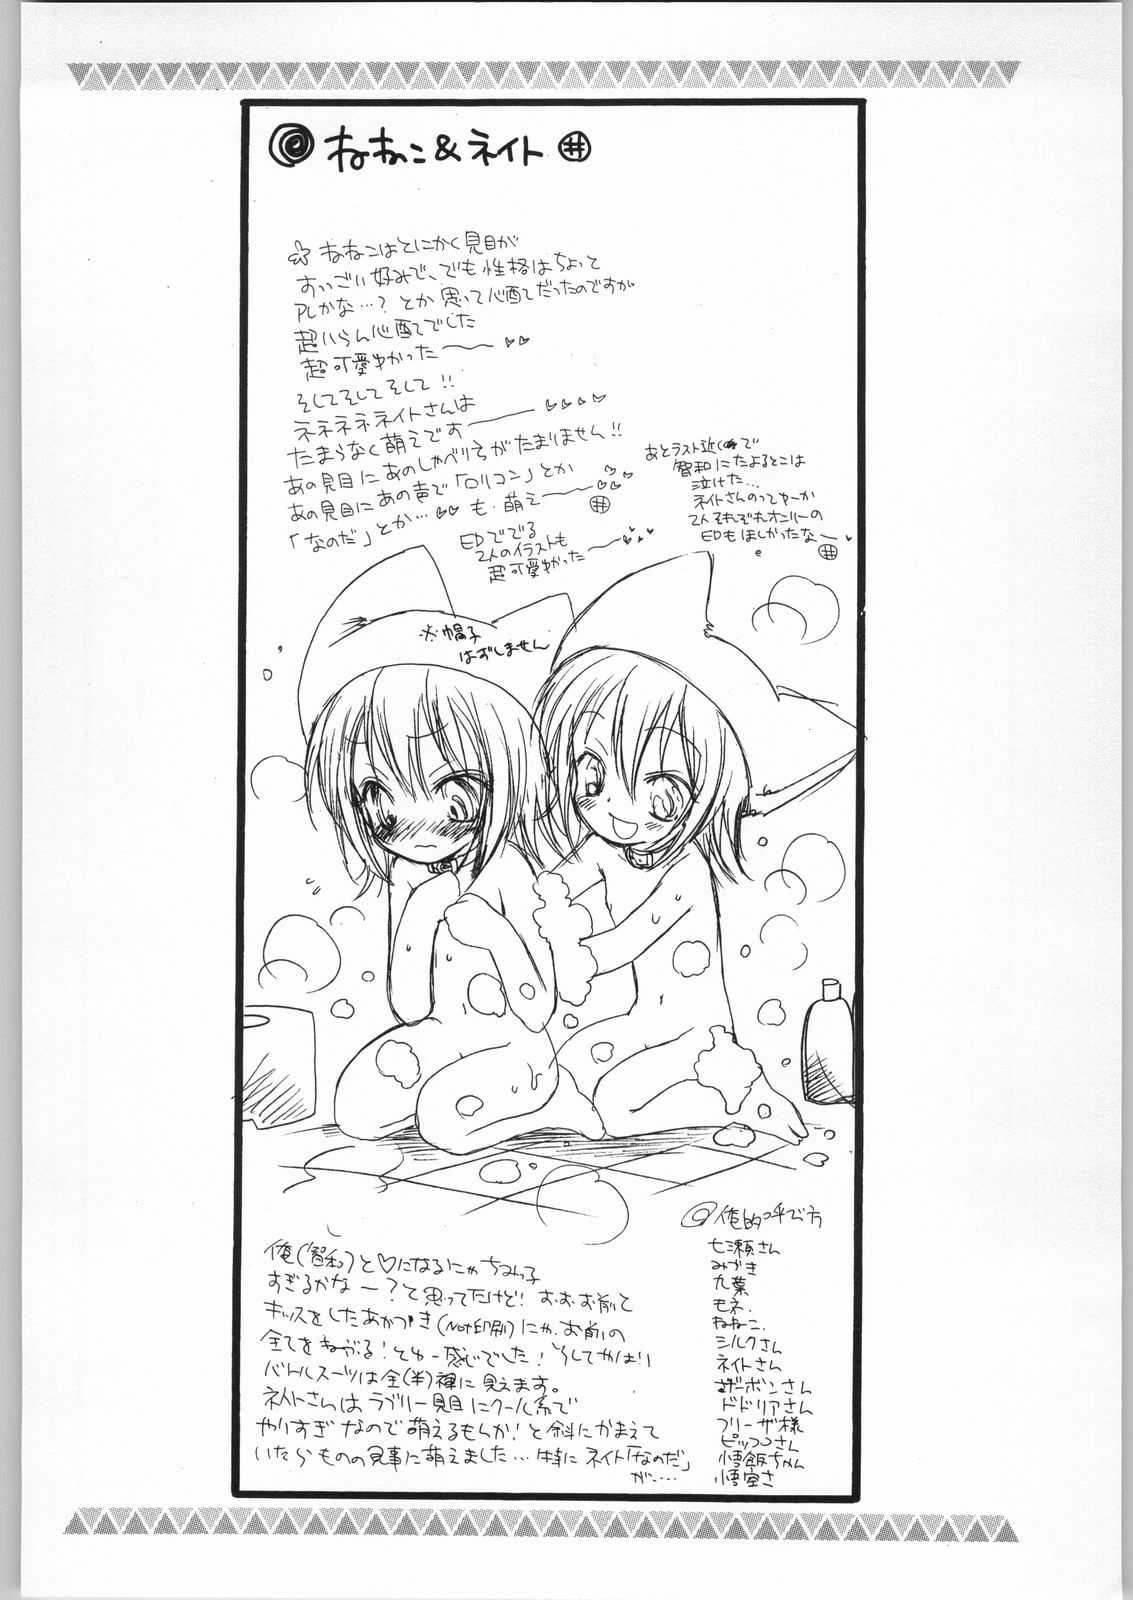 ねねこ&ネイト
☆ ねねこはとにかく見目が
すっごい好みで、でも性格はちょって
アレかな…？とか思って心配でだったのですが
超いらん心配でした
超可愛ゆかった〜〜 ♡♡
そしてそしてそして!!
ネネネネネイトさんは
たまらなく萌えです〜〜 ♡♡♡♡
あの見目にあのしゃべり方がたまりません!!
あの見目にあの声で「ロリコン」とか
「なのだ」とか…♡♡ も・萌え〜〜 ♡♡♡♡
EDででる
2人のイラストも
超可愛ゆかった〜〜
あとラスト近くで
智和にたよるとこは
泣けた…
ネイトさんのってゆーか
2人それぞれオンリーの
EDもほしかったなー
※帽子
はずしません
俺(智和)と♡になるにゃちみっ子
すぎるかなー？と思ってたけど! お・お・お前で
キッスをしたあかつき(Not印刷)にゃ、お前の
全てをねがる! とゆー感じでした! そしてやはり
バトルスーツは全(半)裸に見えます。
ネイトさんはラブリー見目にクール系で
やりすぎなので萌えるもんか! と斜にかまえて
いたらものの見事に萌えました…特にネイト「なのだ」
が……
◎俺的呼び方
七瀬さん
みづき
九葉
モネ.
ねねこ.
シルクさん
ネイトさん
ザーボンさん
ドドリアさん
フリーザ様
ピッコロさん
悟飯ちゃん
悟空さ